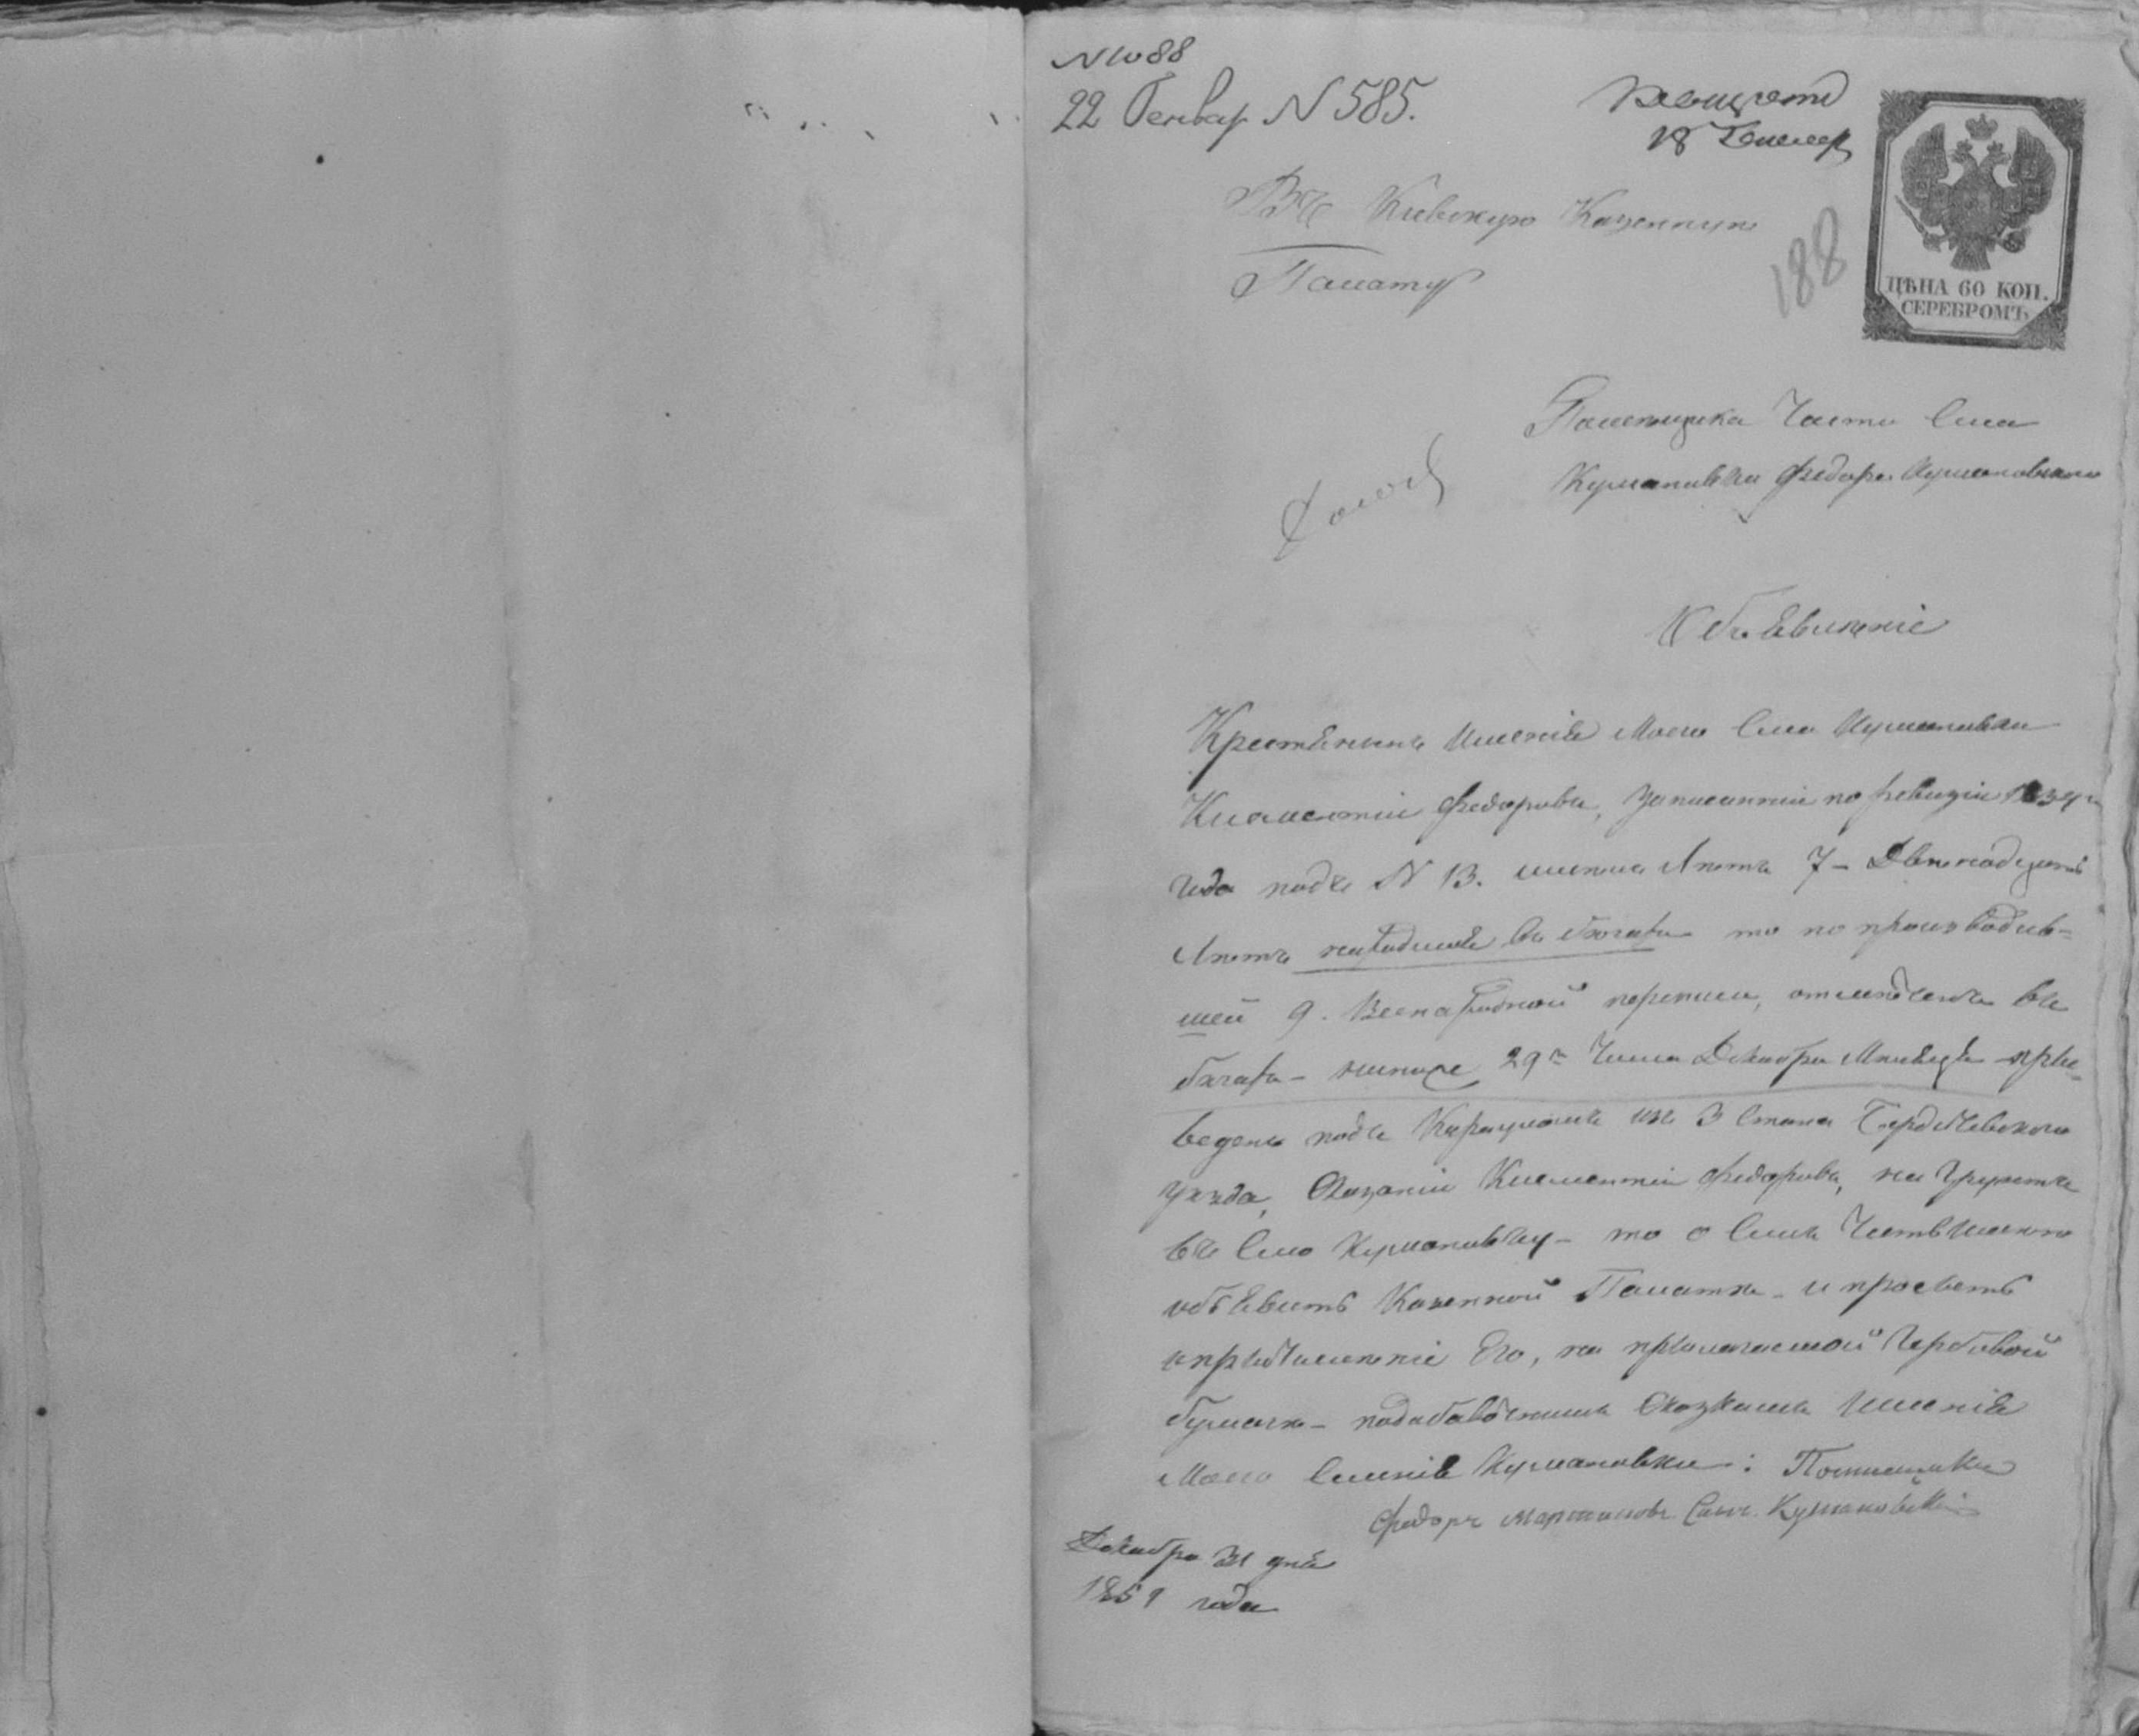 N 1088
22 Генвар N 585.
18 Генвар
Въ Кіевскую Казенную
Палату
188
ЦѢНА 60 КОП.
СЕРЕБРОМЪ
Помещика Части Села
Кумановки Федора Кумановского
Объявленіе
Крестянинъ именія Моего Села Кумановки
Климентій Федоровъ, записанній по ревизіи 1834 г
года подъ N 13. имѣлъ лѣтъ 7 – Двенадцать
лѣтъ находился въ бѣгахъ то по производив=
шей 9. Всенародной переписи, отмѣченъ въ
бѣгахъ – нинѣ 29го Числа Декабра Мисяца при=
веденъ подъ Карауломъ изъ 3 Стана Бердичевского
уѣзда, Означій Климентій Федоровъ, на
въ Село Кумановку – то о Симъ Честь имею
объявить Казенной Палатѣ – и просить
о причисленіе Его, на прилагаемой Гербовой
бумаги – подобавочнимъ Сказкамъ Именія
Моего Кумановки: Помещикъ
Федоръ Мартиновъ Синъ Кумановскій
Декабра 31 дня
1851 года